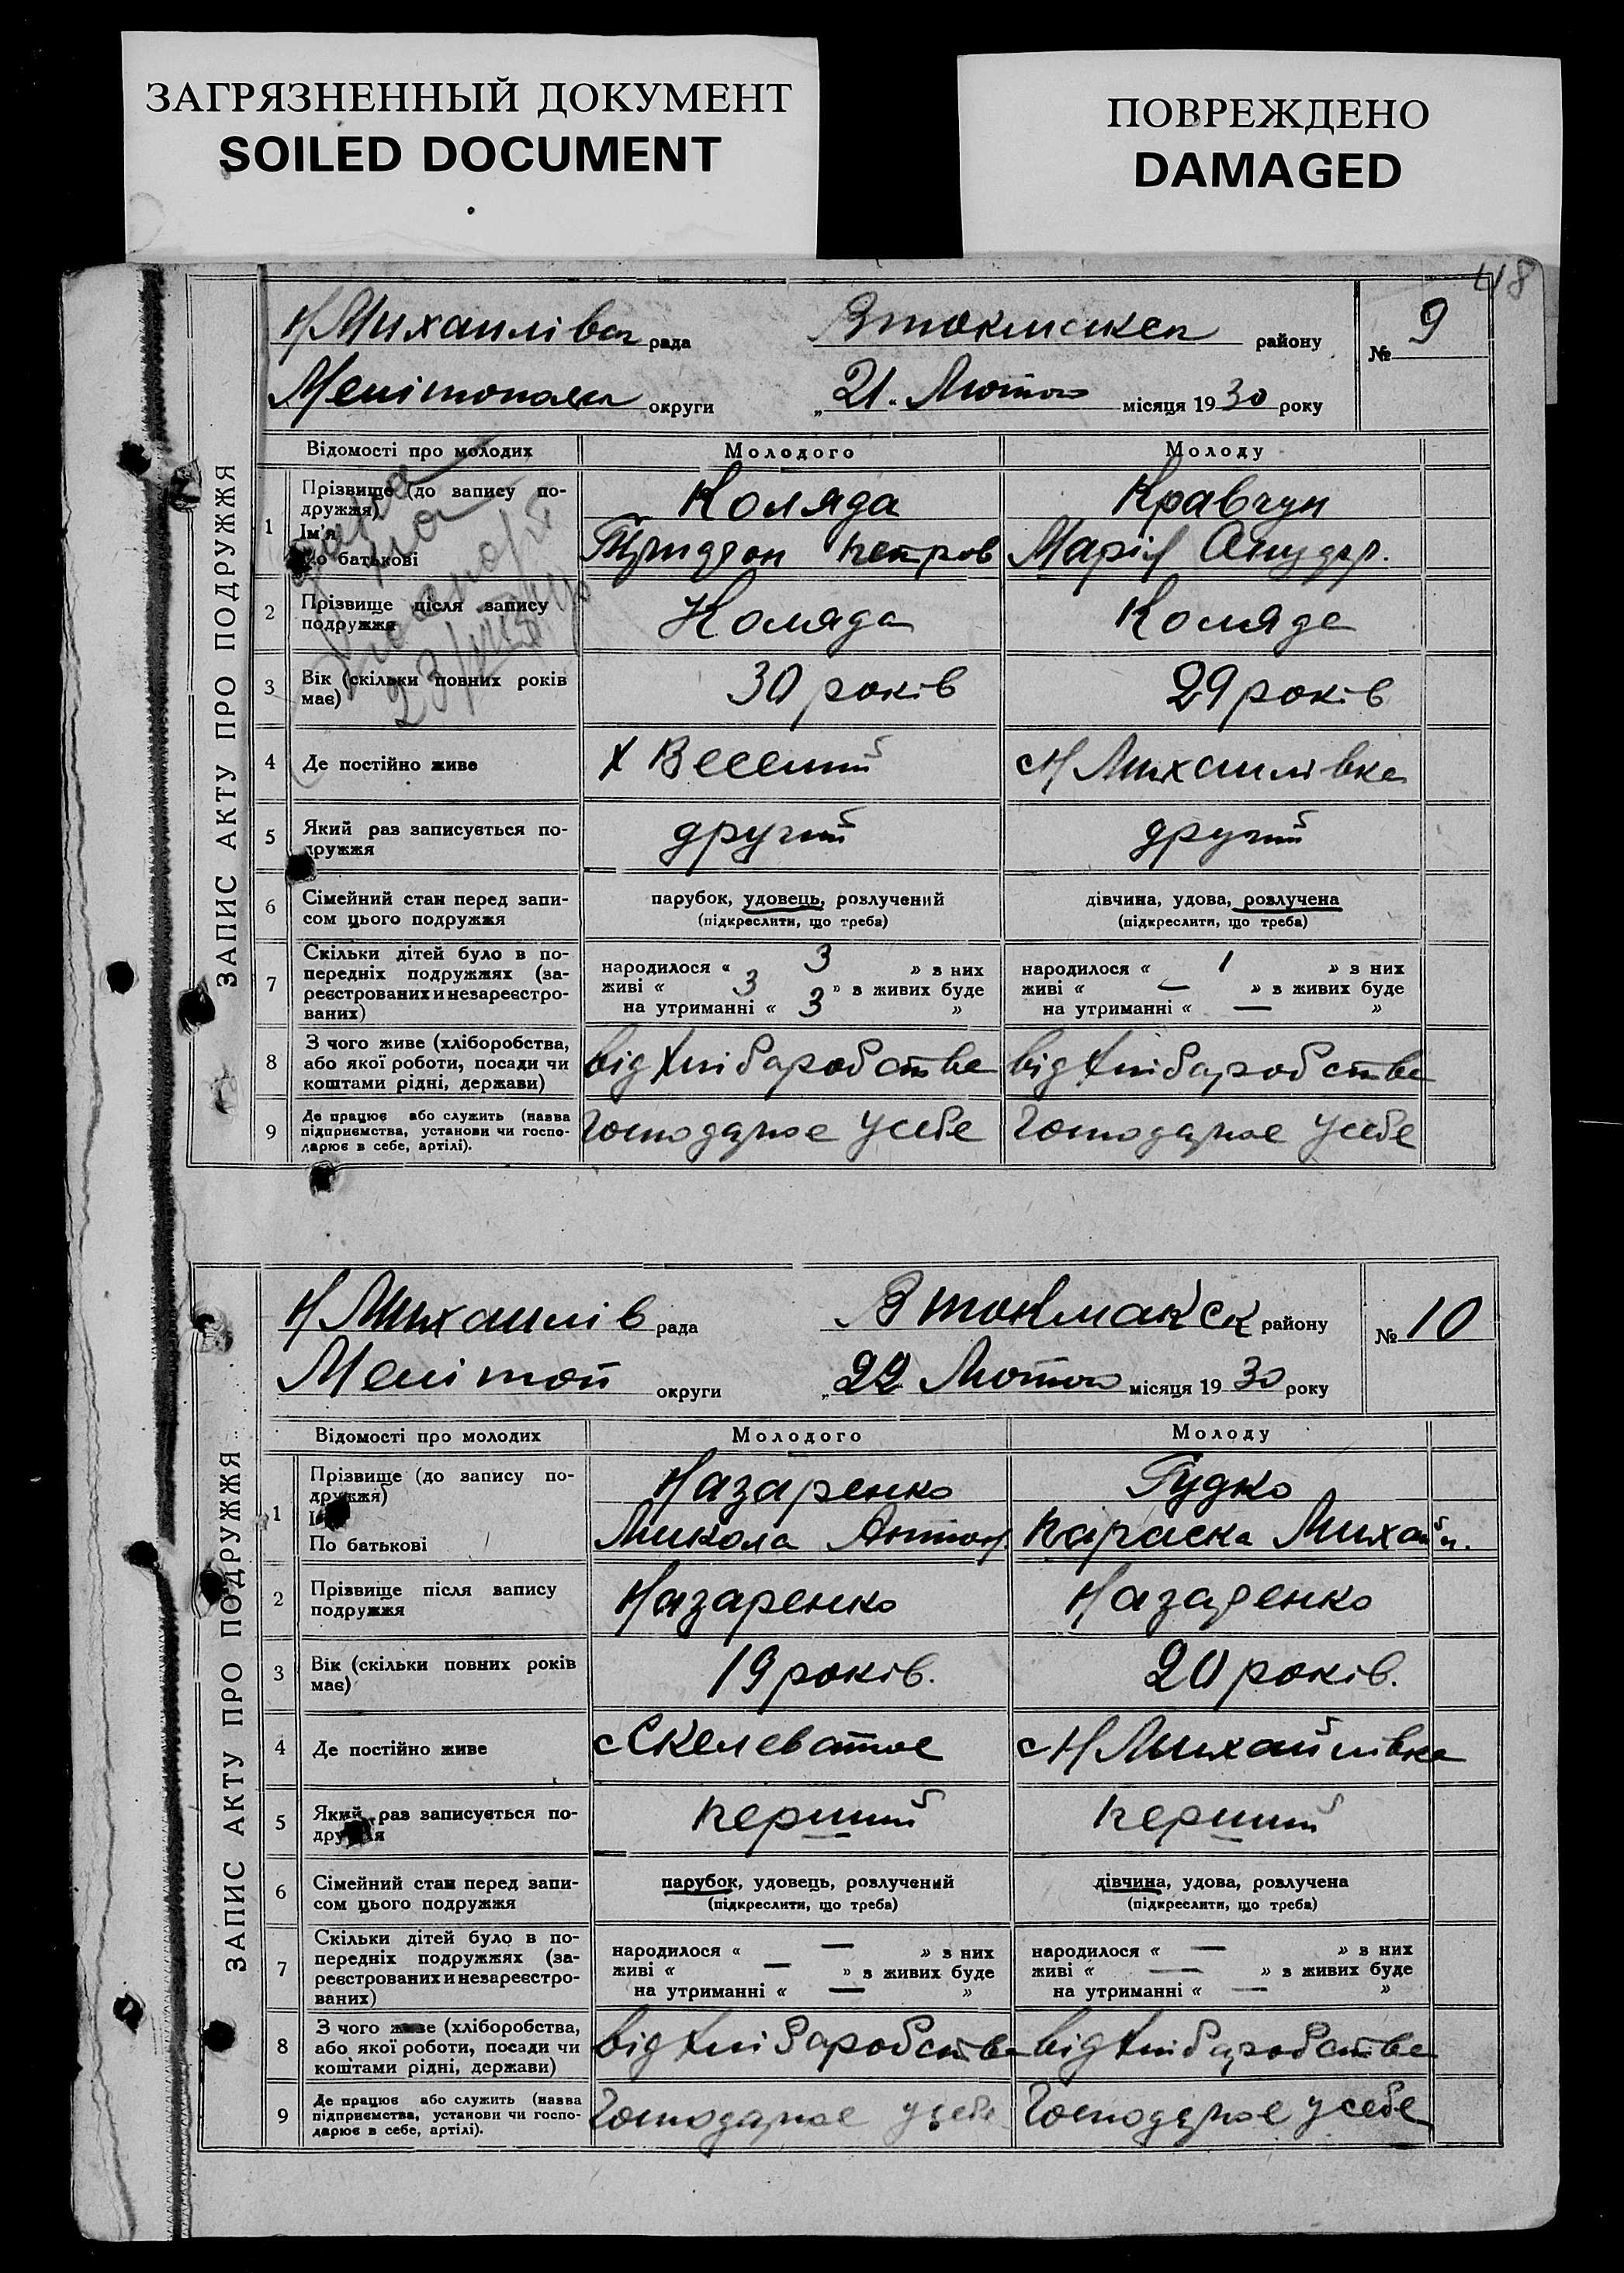 ЗАГРЯЗНЕННЫЙ ДОКУМЕНТ
SOILED DOCUMENT
ПОВРЕЖДЕНО
DAMAGED
418
ЗАПИС АКТУ ПРО ПОДРУЖЖЯ
Н Михаилівса рада району № 9
округи „21“ Лютого місяця 1930 року
Відомості про молодих Молодого Молоду
1 Прізвище (до запису по-
дружжя) Коляда Кравчун
Ім'я
По батькові петров Марія
2 Прізвище після запису
подружжя Коляда Коляда
3 Вік (скільки повних років
має) 30 років 29 років
4 Де постійно живе х Веселий с Н Михаилівка
5 Який раз записується по-
дружжя другий другий
6 Сімейний стан перед запи-
сом цього подружжя парубок, удовець, розлучений дівчина, удова, розлучена
(підкреслити, що треба) (підкреслити, що треба)
7 Скільки дітей було в по-
передніх подружжях (за-
реєстрованих и незареєстро-
ваних)
народилося « 3 » з них народилося « 1 » з них
живі « 3 » з живих буде живі « — » з живих буде
на утриманні « 3 » на утриманні « — »
8 З чого живе (хліборобства,
або якої роботи, посади чи
коштами рідні, держави) від хліборобства від хліборобства
9 Де працює або служить (назва
підприємства, установи чи госпо-
дарює в себе, артілі). Господарює у себе Господарює у себе
ЗАПИС АКТУ ПРО ПОДРУЖЖЯ
Н Михаилів рада В токмакск району № 10
Мелітоп округи „22 Лютого місяця 1930 року
Відомості про молодих Молодого Молоду
1 Прізвище (до запису по-
дружжя) Назаренко Гудко
По батькові Микола Антон. Параска Михайл.
2 Прізвище після запису
подружжя Назаренко Назаренко
3 Вік (скільки повних років
має) 19 років. 20 років.
4 Де постійно живе с Скелеватое с Н Михайлівка
5 Який раз записується по-
дружжя перший перший
6 Сімейний стан перед запи-
сом цього подружжя парубок, удовець, розлучений дівчина, удова, розлучена
(підкреслити, що треба) (підкреслити, що треба)
7 Скільки дітей було в по-
передніх подружжях (за-
реєстрованих и незареєстро-
ваних)
народилося « — » з них народилося « — » з них
живі « — » з живих буде живі « — » з живих буде
на утриманні « — » на утриманні « — »
8 З чого живе (хліборобства,
або якої роботи, посади чи
коштами рідні, держави) від хліборобства від хліборобства
9 Де працює або служить (назва
підприємства, установи чи госпо-
дарює в себе, артілі). Господарює у себе Господарює у себе